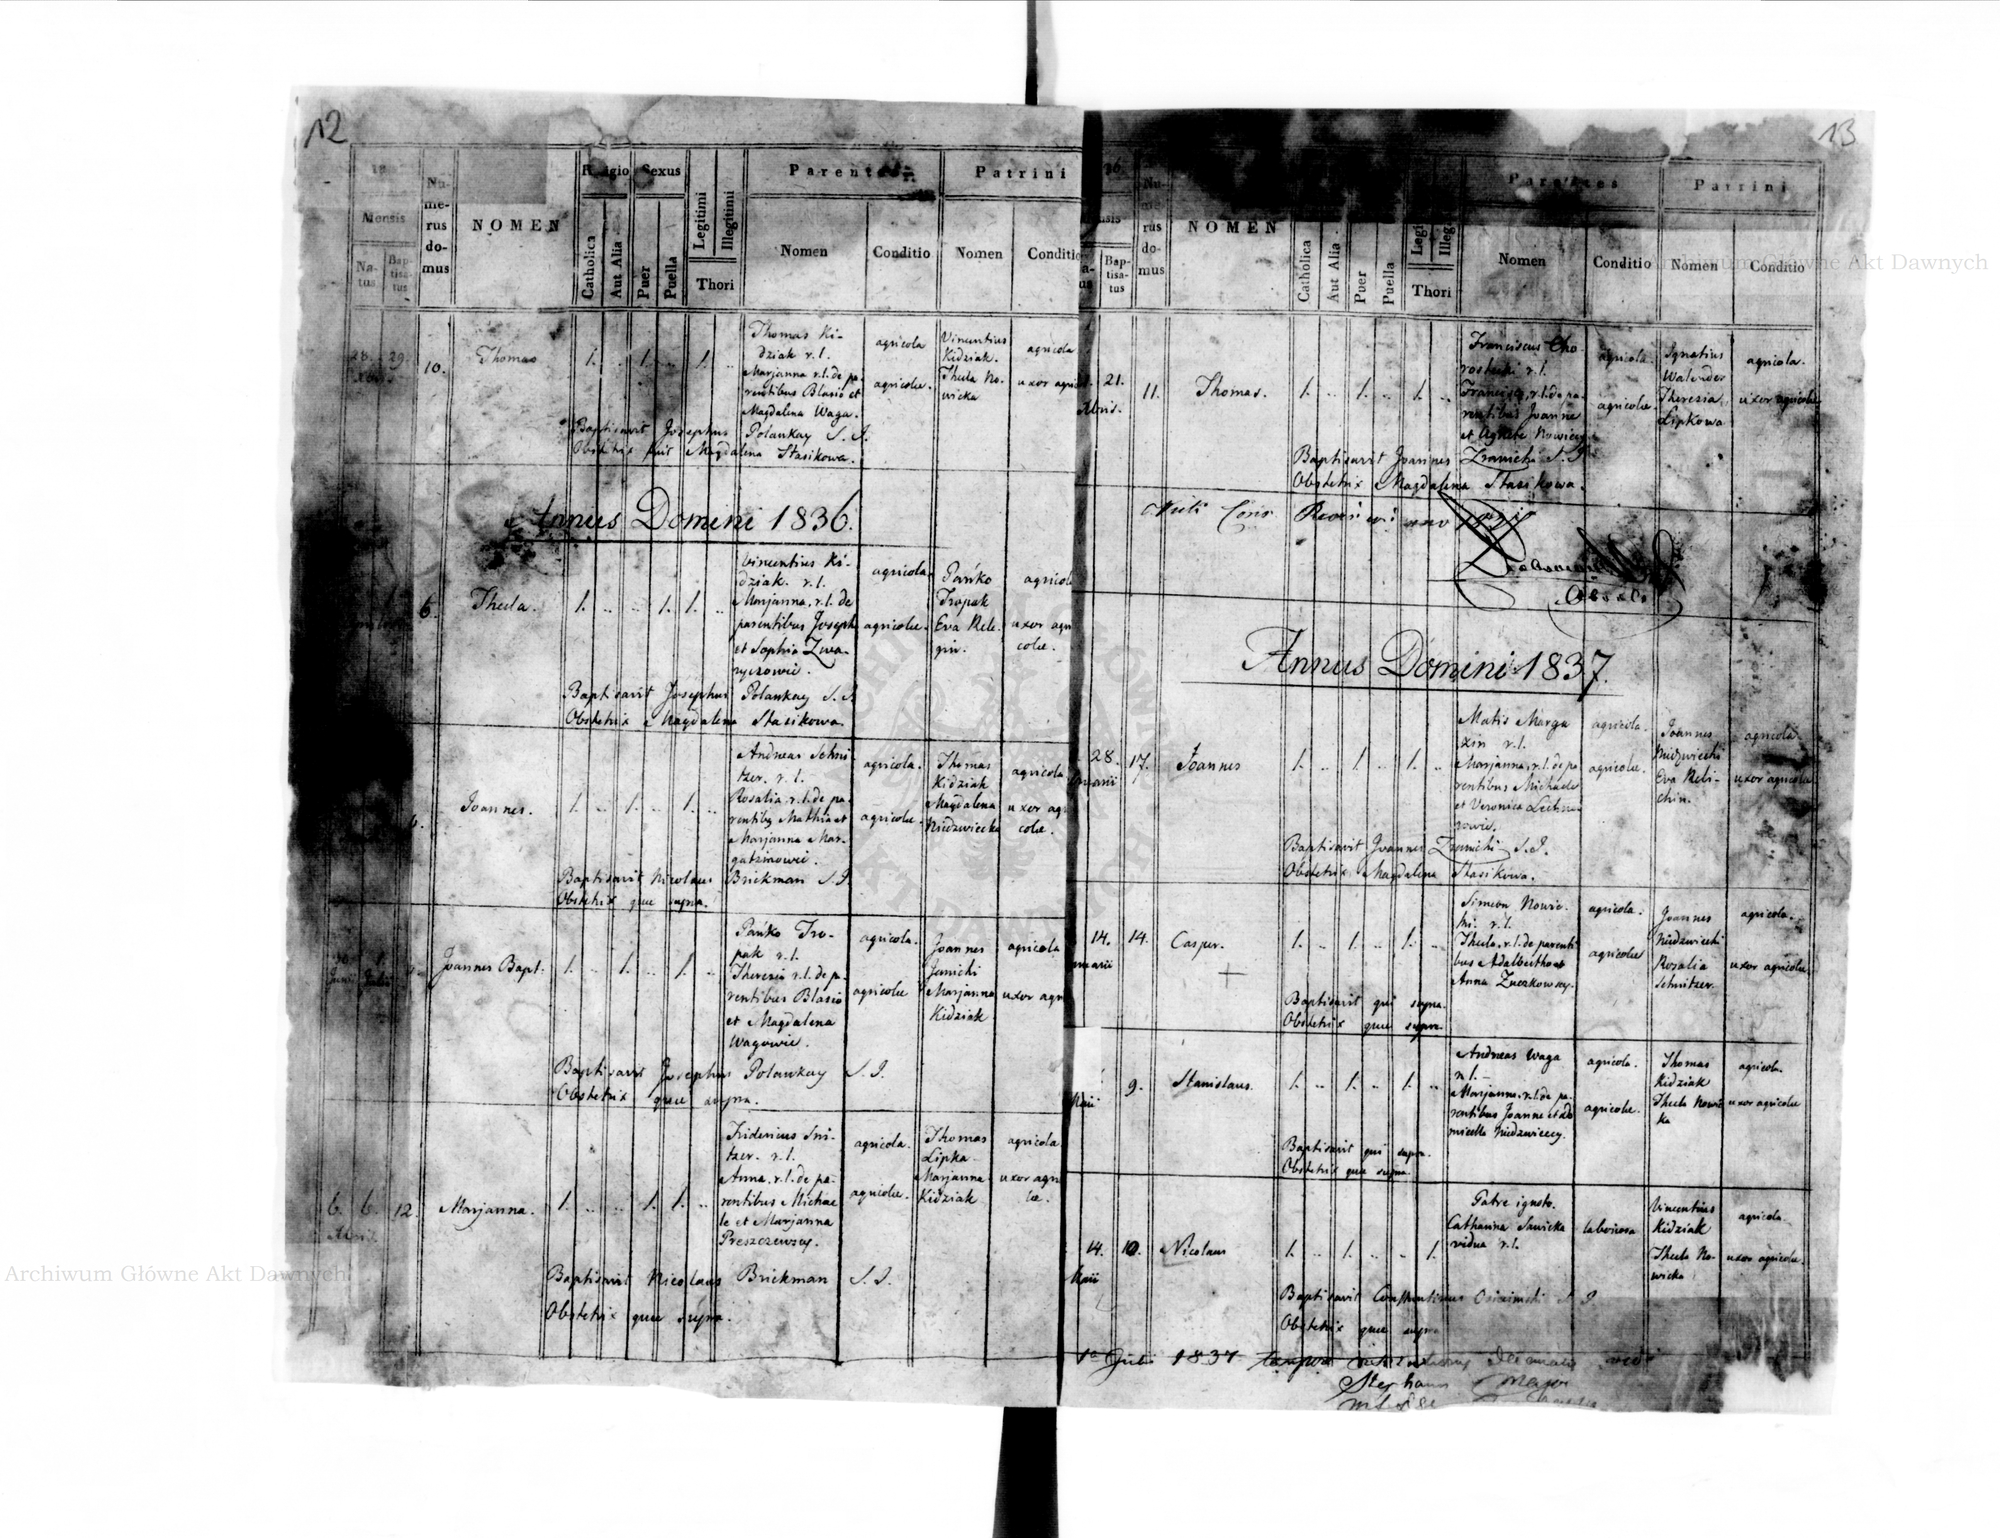 12
Mensis
Na-
tus
Bap-
tisa-
tus
Nu-
me-
rus
do-
mus
NOMEN
Religio
Catholica
Aut Alia
Sexus
Puer
Puella
Legitimi
Illegitimi
Thori
Parentes
Nomen
Conditio
Patrini
Nomen
Conditio
28. 29. 10. Thomas 1. .. 1. .. 1. ..
Thomas Ki-
dziak r. l.
Marjanna r. l. de pa-
rentibus Blasio et
Magdalena Waga.
agricola
agricolae.
Vincentius
Kidziak.
Thecla No-
wicka
agricola
uxor agricol
Baptisavit Josephus Polankay S. J.
Obstetrix fuit Magdalena Stasikowa.
Annus Domini 1836.
6. Thecla. 1. .. .. 1. 1. ..
Vincentius Ki-
dziak. r. l.
Marjanna, r. l. de
parentibus Joseph
et Sophia Zwa-
ryczowie.
agricola.
agricolae.
Pańko
Tropak
Eva Rele-
gin.
agricola
uxor agri
colae.
Baptisavit Josephus Polankay S. J.
Obstetrix Magdalena Stasikowa.
Joannes. 1. .. 1. .. 1. ..
Andreas Schni
tzer. r. l.
Rosalia, r. l. de pa-
rentibus Mathia et
Marjanna Mar-
gatzinowie.
agricola.
agricolae.
Thomas
Kidziak
Magdalena
Niedzwiecka
agricola
uxor ag
colae.
Baptisavit Nicolaus Brickman S. J.
Obstetrix quae supra.
Junii Julii Joannes Bapt. 1. .. 1. .. 1. ..
Pańko Tro-
pak r. l.
Theresia r. l. de p.
rentibus Blasio
et Magdalena
Wagowie.
agricola.
agricolae
Joannes
Janicki
Marjanna
Kidziak
agricola
uxor agri
Baptisavit Josephus Polankay S. J.
Obstetrix quae supra.
6. 6. 12. Marjanna. 1. .. .. 1. 1. ..
Fridericus Sni-
tzer. r. l.
Anna, r. l. de pa-
rentibus Michae
le et Marjanna
Preszczewscy.
agricola.
agricolae.
Thomas
Lipka
Marjanna
Kidziak
agricola
uxor agri
Baptisavit Nicolaus Brickman S. J.
Obstetrix quae supra.
13
36.
Bap-
tisa-
tus
Nu-
me-
rus
do-
mus
NOMEN
Catholica
Aut Alia
Puer
Puella
Thori
Parentes
Nomen
Conditio
Patrini
Nomen
Conditio
21. 11. Thomas. 1. .. 1. .. 1. ..
Franciscus Cho-
rostecki r. l.
Francisca, r. l. de pa-
rentibus Joanne
et Agnete Nowiccy
agricola.
agricolae.
Ignatius
Walender
Theresia
Lipkowa
agricola.
uxor agricolae
Baptisavit Joannes Zranicki S. J.
Obstetrix Magdalena Stasikowa.
Annus Domini 1837.
28. 17. Joannes 1. .. 1. .. 1. ..
Matis Marga
zin r. l.
Marjanna, r. l. de pa
rentibus Michaele
et Veronica
agricola.
agricolae.
Joannes
Niedzwiecki
Eva Rele-
chin.
agricola.
uxor agricolae
Baptisavit Joannes Zranicki S. J.
Obstetrix Magdalena Stasikowa.
14. 14. Casper. 1. .. 1. .. 1. ..
Simeon Nowic-
ki. r. l.
Thecla, r. l. de parenti
bus Adalbertho et
Anna Zuczkowscy.
agricola.
agricolae
Joannes
Niedzwiecki
Rozalia
Schnitzer.
agricola.
uxor agricolae.
Baptisavit qui supra.
Obstetrix quae supra.
Maii 9. Stanislaus. 1. .. 1. .. 1. ..
Andreas Waga
r. l.
Marjanna, r. l. de pa-
rentibus Joanne et do
micella Niedzwieccy.
agricola.
agricolae.
Thomas
Kidziak
Thecla Nowic
ka
agricola.
uxor agricolae
Baptisavit qui supra.
Obstetrix quae supra.
14. 10. Nicolaus 1. .. 1. .. .. 1.
Maii
Patre ignoto.
Catharina Sawicka
vidua r. l.
laboriosa
Vincentius
Kidziak
Thecla No-
wicka
agricola.
uxor agricolae.
Baptisavit Constantinus S. J.
Obstetrix quae supra
Julii 1837
Archiwum Główne Akt Dawnych
Archiwum Główne Akt Dawnych